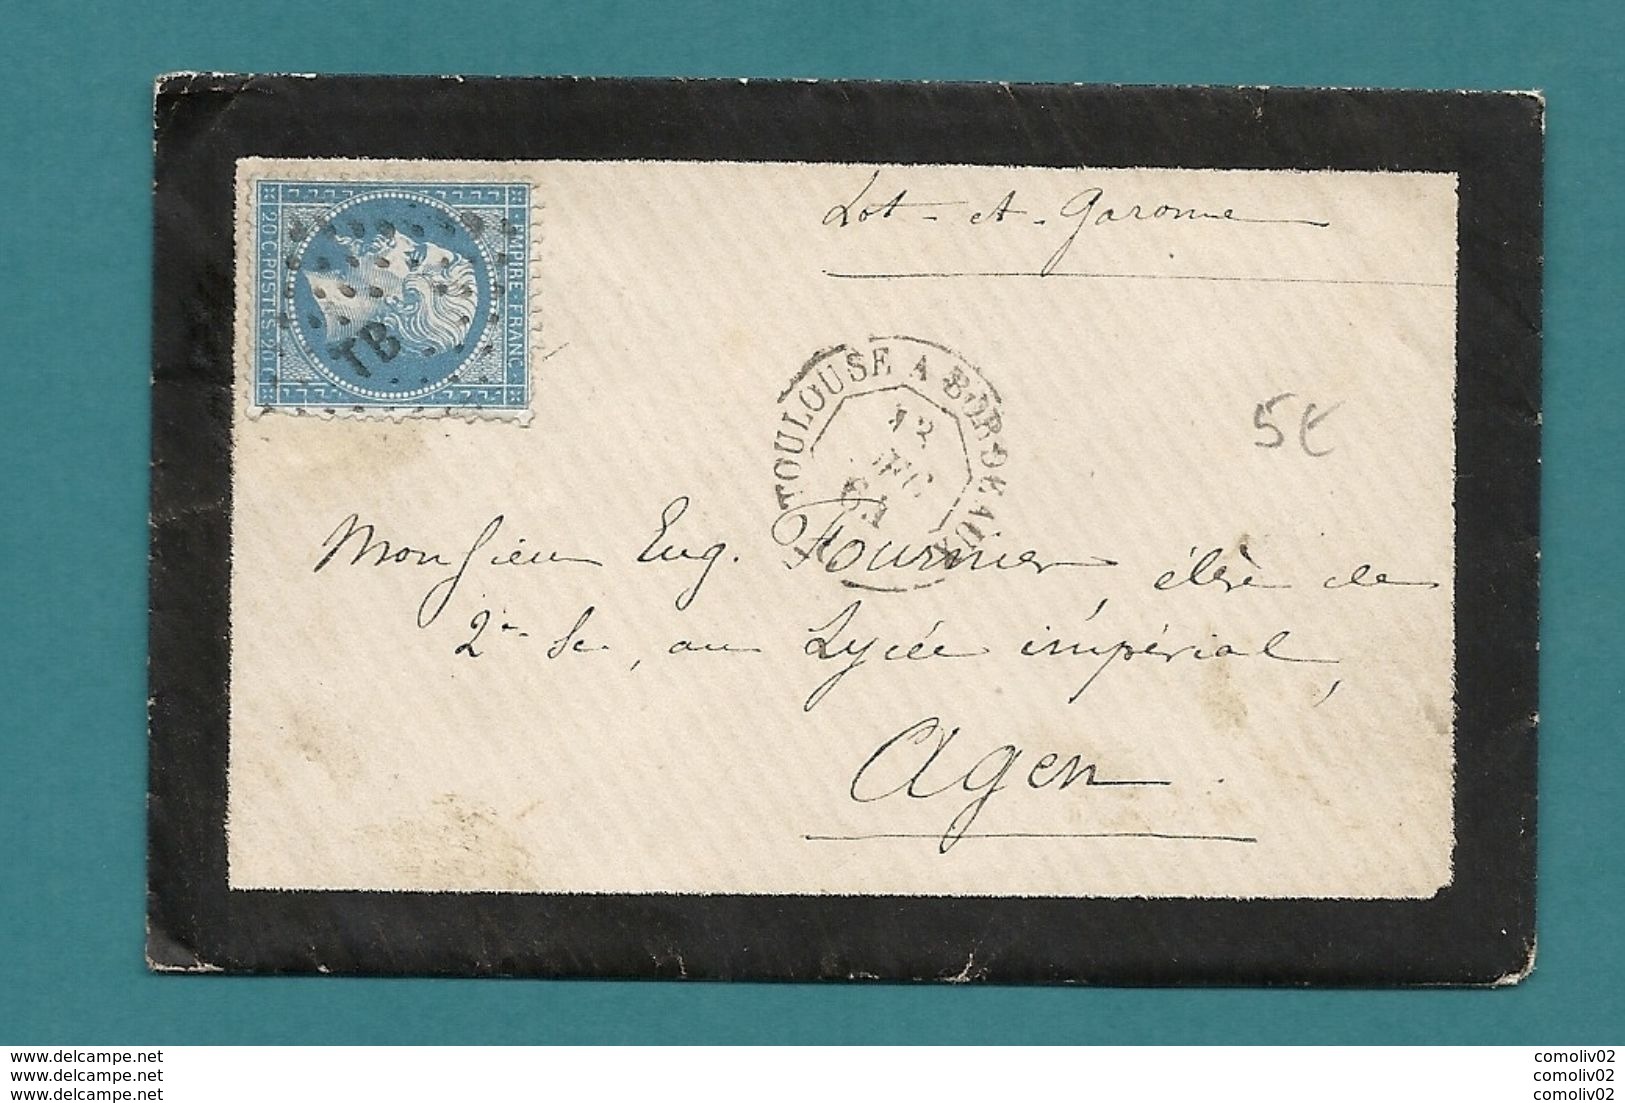 Lot-et-Garonne
EMPIRE FRANC
20 C POSTES 20 C
TB
TOULOUSE A BORDEAUX
12
5€
Monsieur Eug. Fournier, élève de
2e Sc., au Lycée impérial,
Agen.
www.delcampe.net
www.delcampe.net
www.delcampe.net
comoliv02
comoliv02
comoliv02